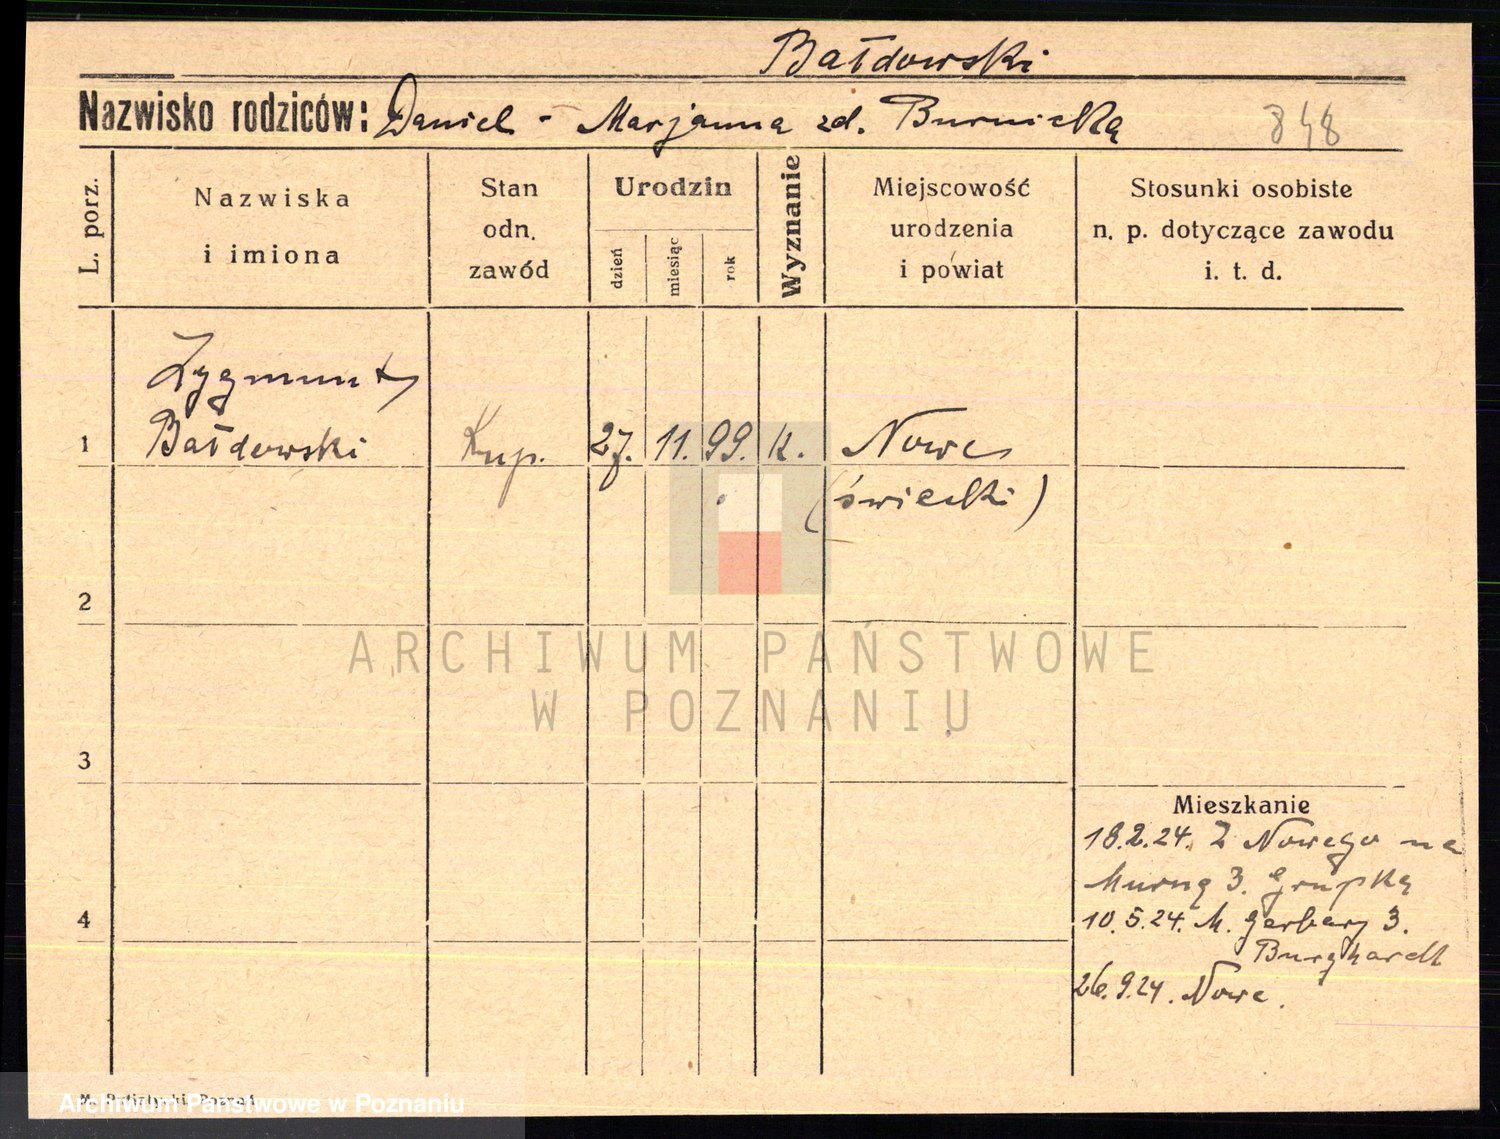 Bałdowski
Nazwisko rodziców: Daniel - Marjanna zd. Burnicka
848
L. porz.
Nazwiska i imiona
Stan odn. zawód
Urodzin
dzień
miesiąc
rok
Wyznanie
Miejscowość urodzenia i powiat
Stosunki osobiste n. p. dotyczące zawodu i. t. d.
Zygmunt
1 Bałdowski Kup. 27. 11. 99. k. Nowe
(świecki)
2
ARCHIWUM PAŃSTWOWE
W POZNANIU
3
Mieszkanie
18.2.24. Z Nowego na
Murną 3. Grupką
4
10.5.24. M. Garbary 3.
Burghardt
26.9.24. Nowe.
Archiwum Państwowe w Poznaniu